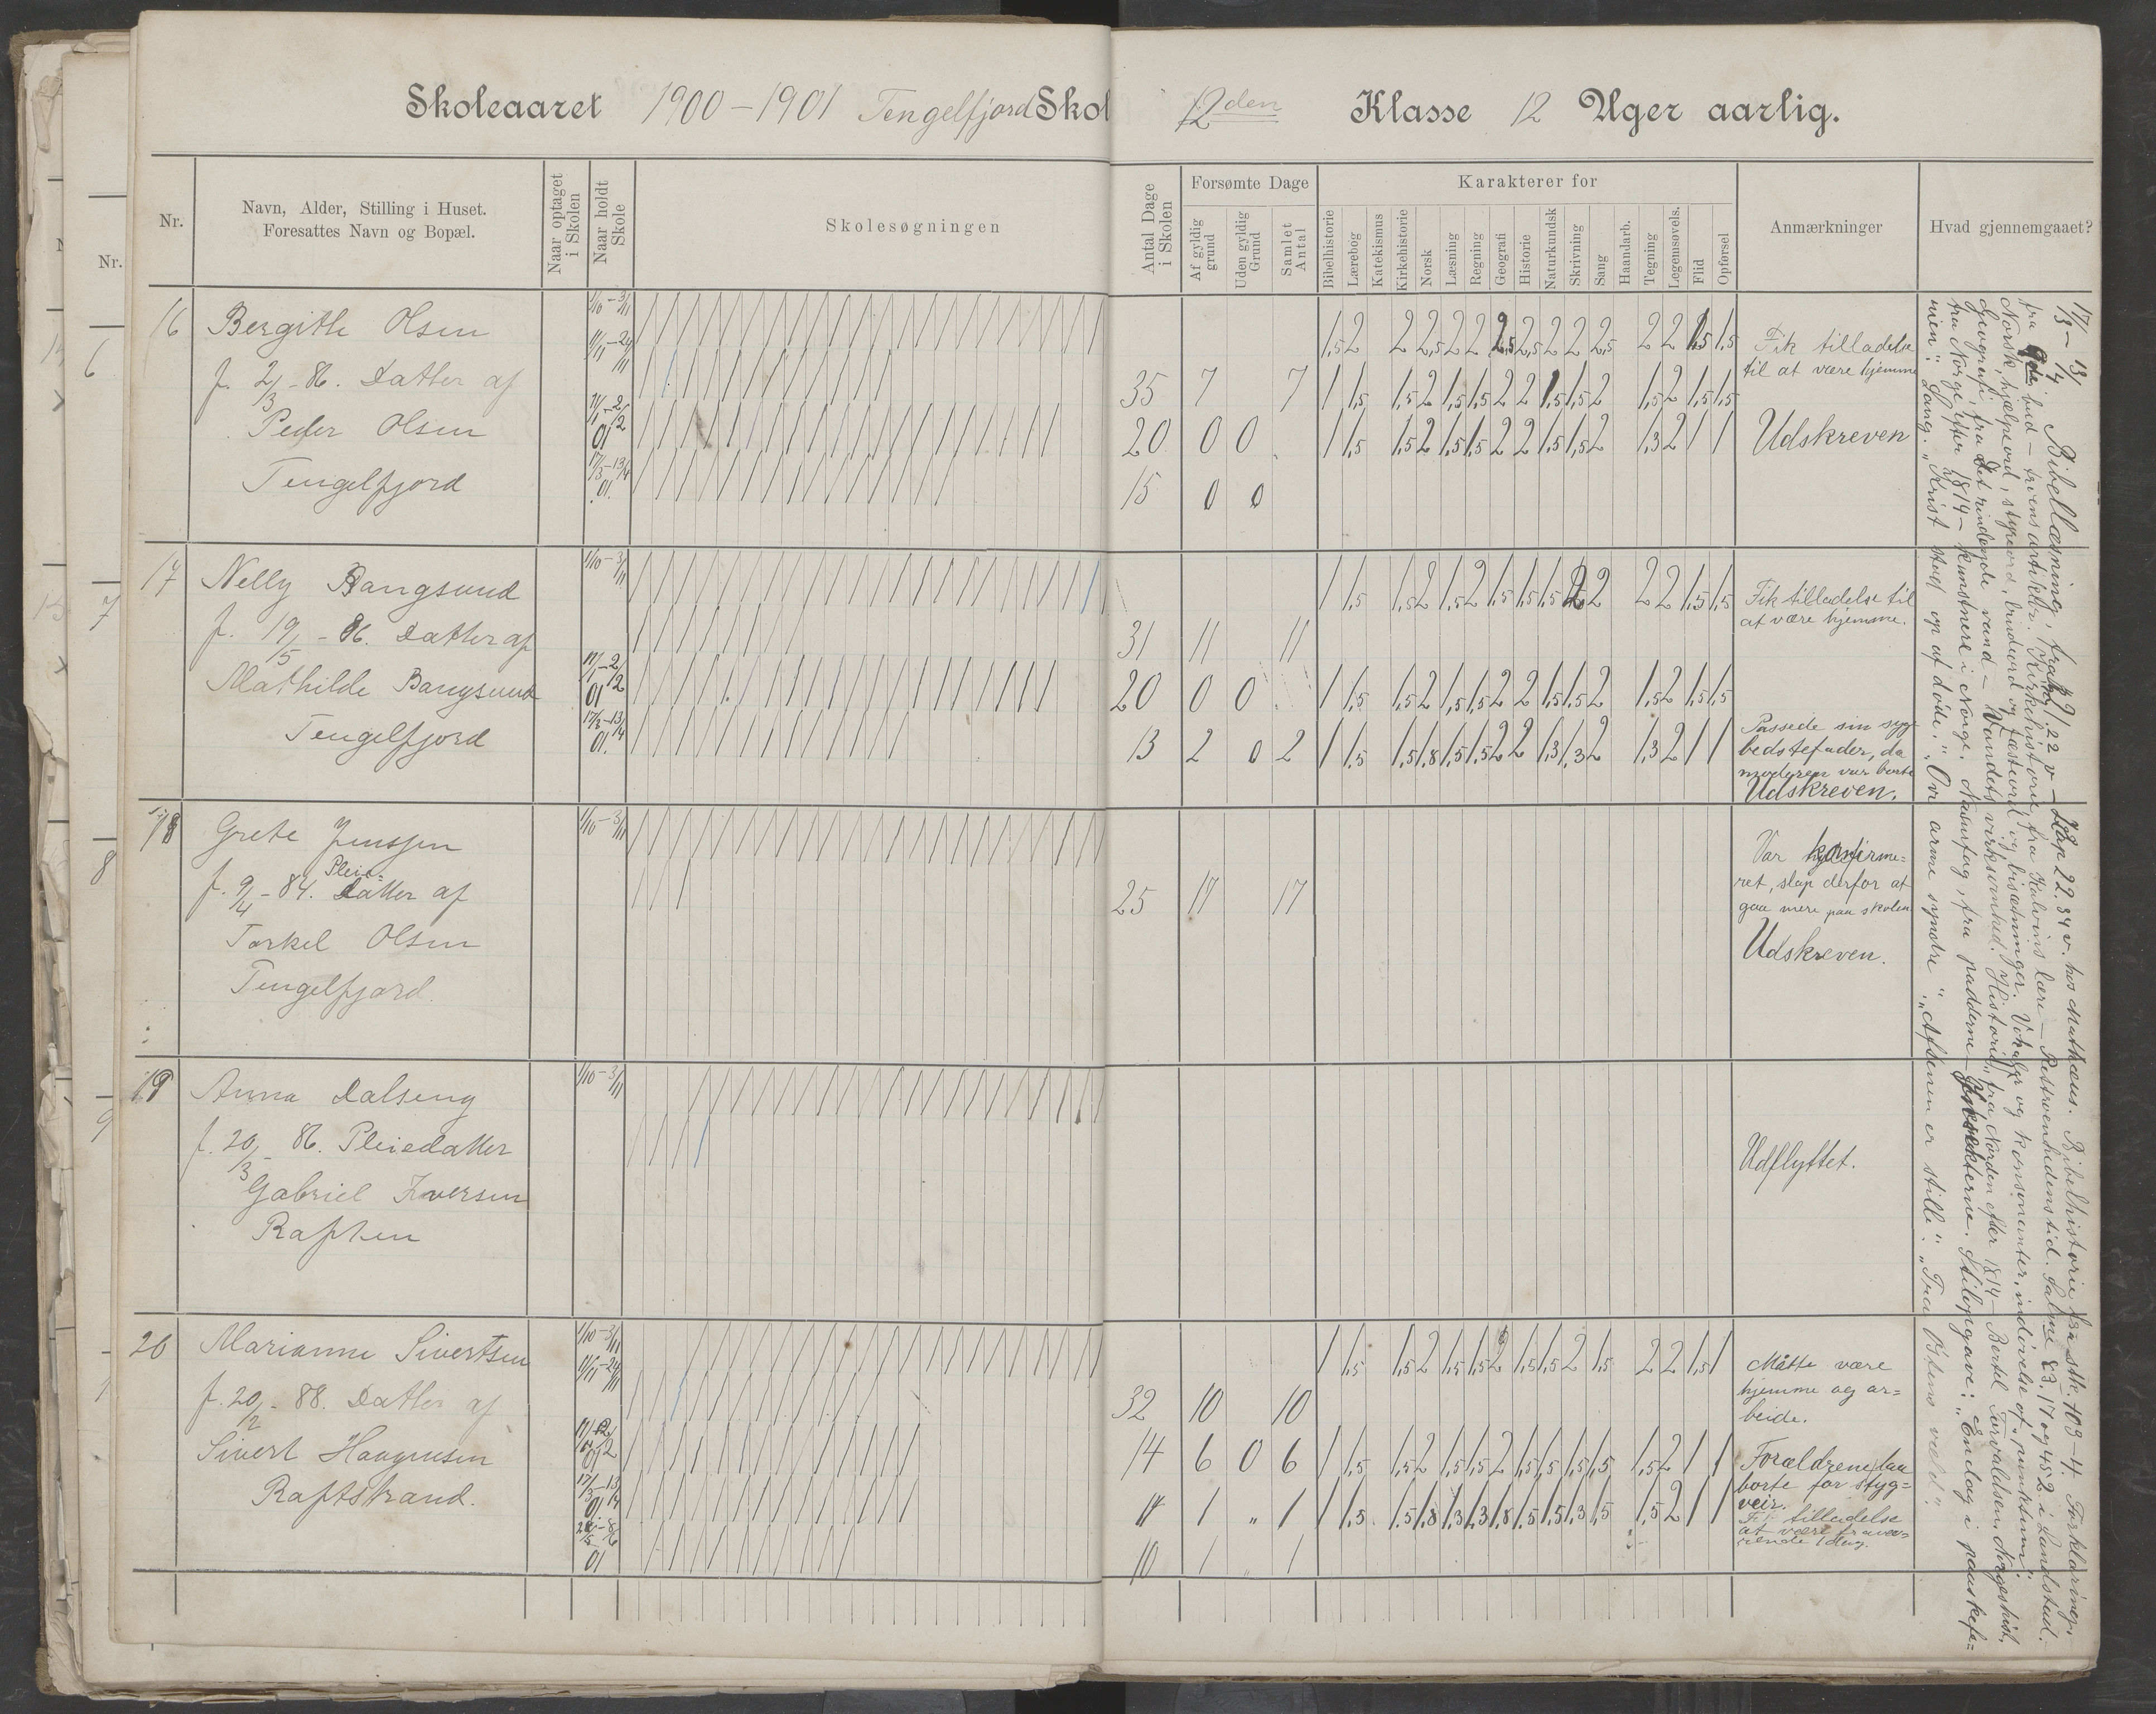 Skoleaaret 1900-1901 Tengelfjord Skol
12den Klasse 12 Uger aarlig.
Nr.
Navn, Alder, Stilling i Huset.
Foresattes Navn og Bopæl.
Naar optaget
i Skolen
Naar holdt
Skole
Skolesøgningen
Antal Dage
i Skolen
Forsømte Dage
Af gyldig
grund
Uden gyldig
Grund
Samlet
Antal
Karakterer for
Bibelhistorie
Lærebog
Katekismus
Kirkehistorie
Norsk
Læsning
Regning
Geografi
Historie
Naturkundsk
Skrivning
Sang
Haandarb.
Tegning
Legemsøvels.
Flid
Opførsel
Anmærkninger
Hvad gjennemgaaet?
16 Bergitte Olsen
f. 2/3-86. Datter af
Peder Olsen
Tengelfjord
1/10-3/11
11/11-24/11
11/1-2/2
01
17/3-13/4
01.
1,5 2 2 2,5 2 2 2 2,5 2,5 2 2 2 2,5 2 2 1,5 1,5
35 7 7 1 1,5 1,5 2 1,5 1,5 2 2 1,5 1,5 2 1,5 2 1,5 1,5
20 0 0 1 1,5 1,5 2 1,5 1,5 2 2 1,5 1,5 2 1,3 2 1 1
15 0 0
Fik tilladelse
til at være hjemme
Udskreven
17 Nelly Bangsund
f. 19/5-86. Datter af
Mathilde Bangsund
Tengelfjord
1/10-3/11
11/1-2/2
01
17/3-13/4
01.
1 1,5 1,5 2 1,5 2 1,5 1,5 1,5 2 2 2 2 1,5 1,5
31 11 11
20 0 0 1 1,5 1,5 2 1,5 1,5 2 2 1,5 1,5 2 1,5 2 1,5 1,5
13 2 0 2 1 1,5 1,5 1,8 1,5 1,5 2 2 1,3 1,3 2 1,3 2 1 1
Fik tilladelse til
at være hjemme.
Passede sin syge
bedstefader, da
moderen var borte
Udskreven.
18 Grete Jenssen
Pleie-
f. 9/4-84. Datter af
Torkel Olsen
Tengelfjord.
1/10-3/11
25 17 17
Var konfirme=
ret, slap derfor at
gaa mere paa skolen
Udskreven.
19 Anna Dalseng
f. 20/3-86. Pleiedatter
Gabriel Iversen
Raften
1/10-3/11
Udflyttet.
20 Marianne Sivertsen
f. 20/2-88. Datter af
Sivert Haagensen
Raftstrand.
1/10-3/11
11/11-24/11
01
17/3-13/4
01
01
1 1,5 1,5 2 1,5 1,5 2 1,5 1,5 2 1,5 2 2 1,5 1
32 10 10
14 6 0 6 1 1,5 1,5 2 1,5 1,5 2 1,5 1,5 1,5 1,5 1,5 2 1 1
14 1 „ 1 1 1,5 1,5 1,8 1,3 1,3 1,8 1,5 1,5 1,3 1,5 1,5 2 1 1
10 1 „ 1
Måtte være
hjemme og ar=
beide.
Forældrene laa
borte for styg=
veir.
Fik tilladelse
at være fravæ=
rende 1 dag.
17/3 - 13/4 Bibellæsning, fra 22 v - Kap 22. 34 v. hos Matthæus. Bibelhistorie fra stk. 103-4. Forklaring,
fra bud - trosartikler. Kirkehistorie fra Kalvins lære - Rettroenhedens tid. Salme 83. 17 og 452 i Landstad.
Norsk, hjælpeord, styreord, bindeord og fæsteord og bisætninger. Vokaler og konsonanter, indøvelse af „punktum".
Geografi fra Det rindende vand - Vandets virksomhed. Historie fra Norden efter 1814 - Bertel Torvaldsen. Norgeshist.
fra Norge efter 1814 - kunstnere i Norge. Naturfag, fra padderne - Insekterne. Stilopgave: „En dag i paaskefe=
rien". Sang. „Krist stod op af døde", „Ovr arme syndre", „Aftenen er stille". „Fra Østens vælde".
6
7
8
9